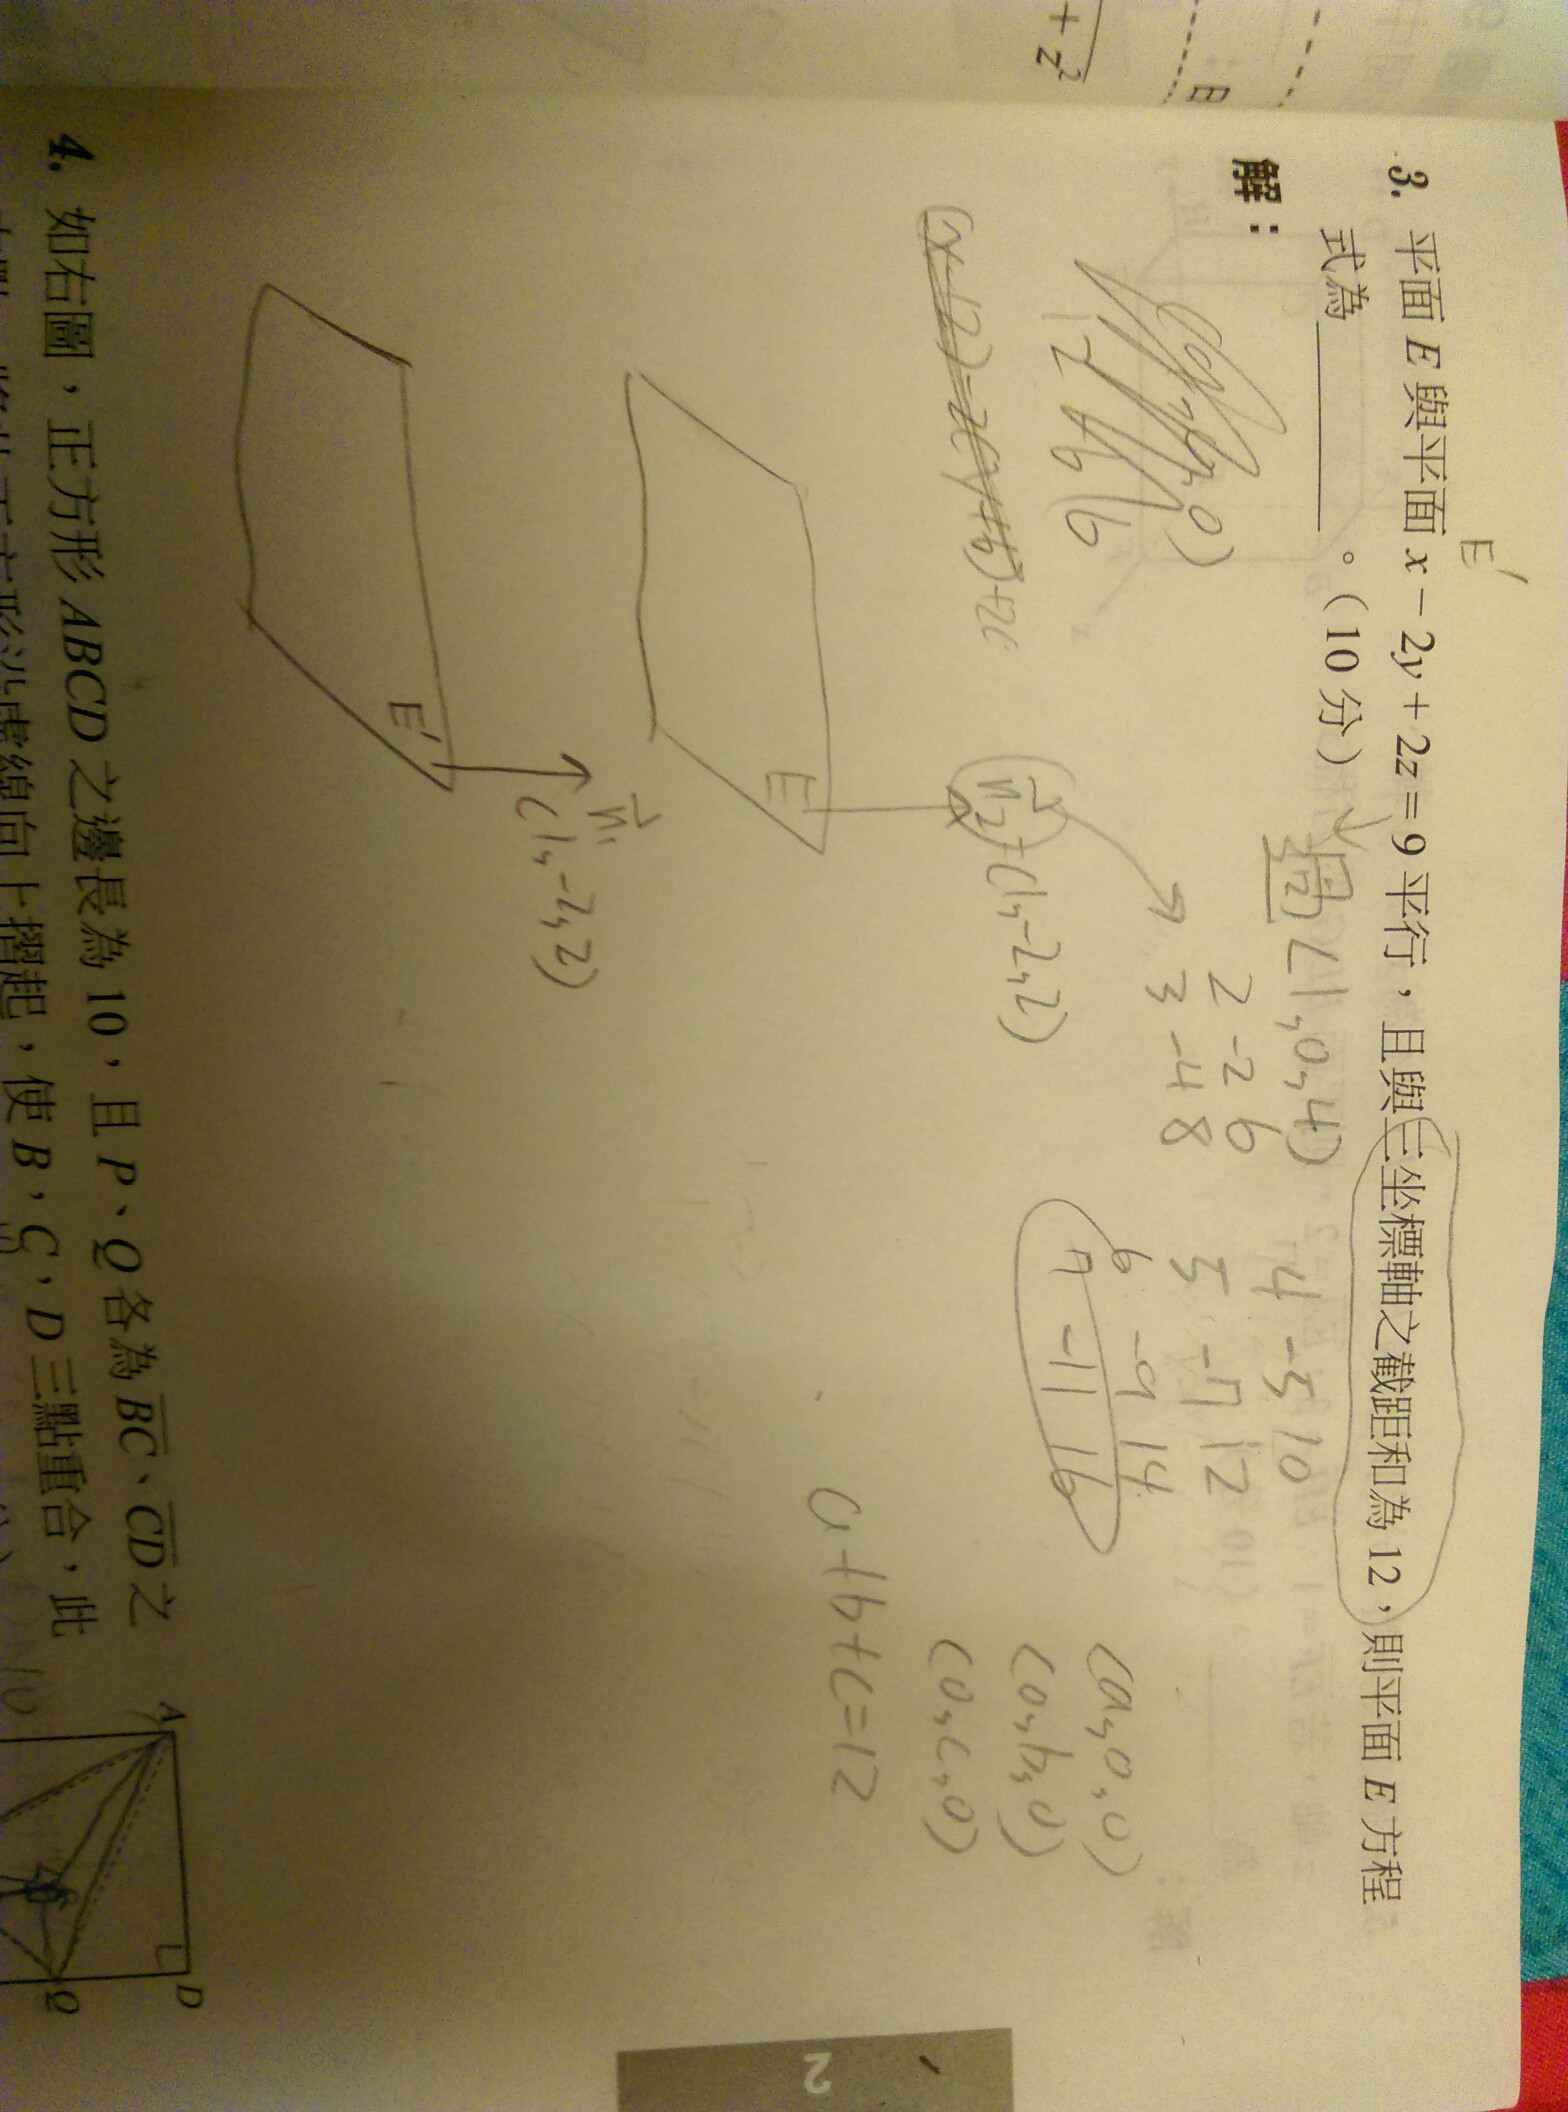 + z²
3. 平面 E 與平面 x − 2y + 2z = 9 平行，且與三坐標軸之截距和為 12，則平面 E 方程
式為＿＿＿＿＿＿。（10 分）
E'
解：
(1,0,4)
2 -2 6
3 -4 8
4 -5 10
5 -7 12
6 -9 14
7 -11 16
(a,0,0)
(0,b,0)
(0,c,0)
a+b+c=12
n₂=(1,-2,2)
E
n₁
(1,-2,2)
E'
4. 如右圖，正方形 ABCD 之邊長為 10，且 P、Q 各為 BC、CD 之
正方形沿虛線向上摺起，使 B，C，D 三點重合，此
A
D
Q
2